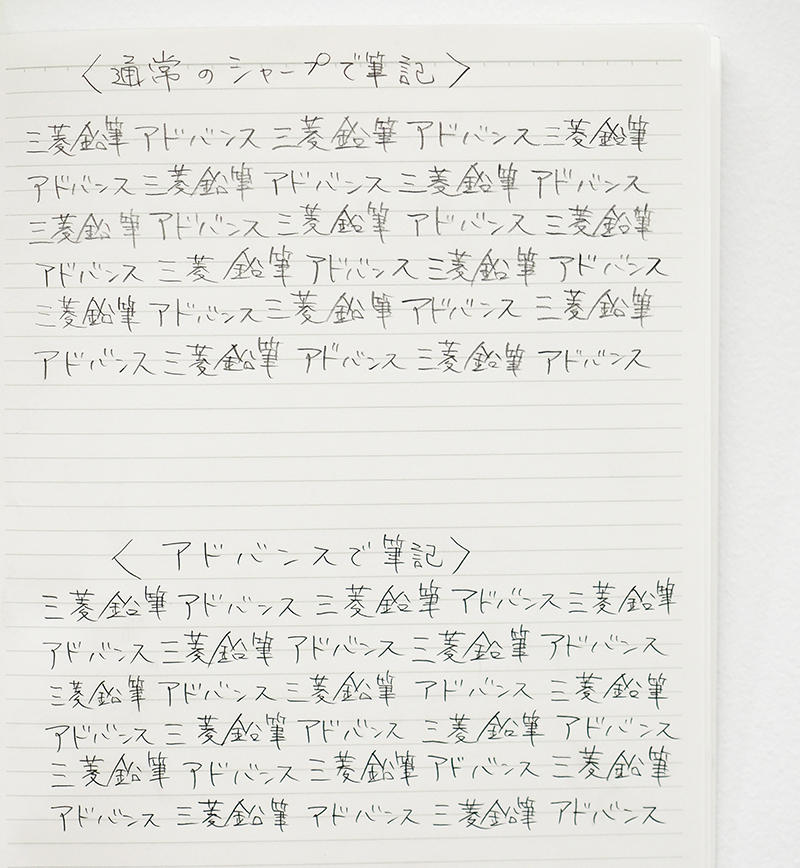 〈通常のシャープで筆記〉
三菱鉛筆 アドバンス 三菱鉛筆 アドバンス 三菱鉛筆
アドバンス 三菱鉛筆 アドバンス 三菱鉛筆 アドバンス
三菱鉛筆 アドバンス 三菱鉛筆 アドバンス 三菱鉛筆
アドバンス 三菱鉛筆 アドバンス 三菱鉛筆 アドバンス
三菱鉛筆 アドバンス 三菱鉛筆 アドバンス 三菱鉛筆
アドバンス 三菱鉛筆 アドバンス 三菱鉛筆 アドバンス
〈アドバンスで筆記〉
三菱鉛筆 アドバンス 三菱鉛筆 アドバンス 三菱鉛筆
アドバンス 三菱鉛筆 アドバンス 三菱鉛筆 アドバンス
三菱鉛筆 アドバンス 三菱鉛筆 アドバンス 三菱鉛筆
アドバンス 三菱鉛筆 アドバンス 三菱鉛筆 アドバンス
三菱鉛筆 アドバンス 三菱鉛筆 アドバンス 三菱鉛筆
アドバンス 三菱鉛筆 アドバンス 三菱鉛筆 アドバンス